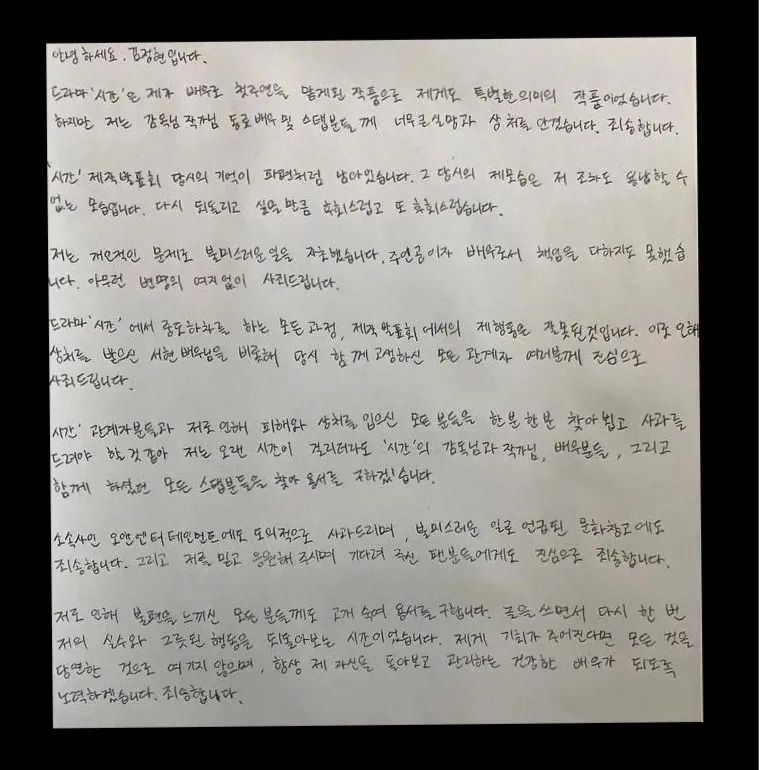 안녕하세요. 김정현입니다.
드라마 '시간'은 제가 배우로 첫주연을 맡게된 작품으로 제게도 특별한 의미의 작품이었습니다.
하지만 저는 감독님 작가님 동료배우 및 스탭분들께 너무큰실망과 상처를 안겼습니다. 죄송합니다.
'시간' 제작발표회 당시의 기억이 파편처럼 남아있습니다. 그 당시의 제모습은 저 조차도 용납할 수
없는 모습입니다. 다시 되돌리고 싶을만큼 후회스럽고 또 후회스럽습니다.
저는 개인적인 문제로 불미스러운일을 자초했습니다. 주인공이자 배우로서 책임을 다하지도 못했습
니다. 아무런 변명의 여지없이 사죄드립니다.
드라마 '시간' 에서 중도하차를 하는 모든과정, 제작발표회에서의 제행동은 잘못된것입니다. 이로 인해
상처를 받으신 서현 배우님을 비롯해 당시 함께고생하신 모든 관계자 여러분께 진심으로
사죄드립니다.
시간' 관계자분들과 저로인해 피해와 상처를 입으신 모든분들을 한분한분 찾아뵙고 사과를
드려야 할것같아 저는 오랜 시간이 걸리더라도 '시간'의 감독님과작가님, 배우분들, 그리고
함께 하셨던 모든 스탭분들을 찾아 용서를 구하겠습니다.
소속사인 오앤엔터테인먼트에도 도의적으로 사과드리며, 불미스러운 일로 언급된 문화창고에도
죄송합니다. 그리고 저를 믿고 응원해 주시며 기다려 주신 팬분들에게도 진심으로 죄송합니다.
저로 인해 불편을 느끼신 모든 분들께도 고개 숙여 용서를 구합니다. 글을 쓰면서 다시 한 번
저의 실수와 그릇된 행동을 되돌아보는 시간이었습니다. 제게 기회가 주어진다면 모든 것을
당연한 것으로 여기지 않으며, 항상 제 자신을 돌아보고 관리하는 건강한 배우가 되도록
노력하겠습니다. 죄송합니다.